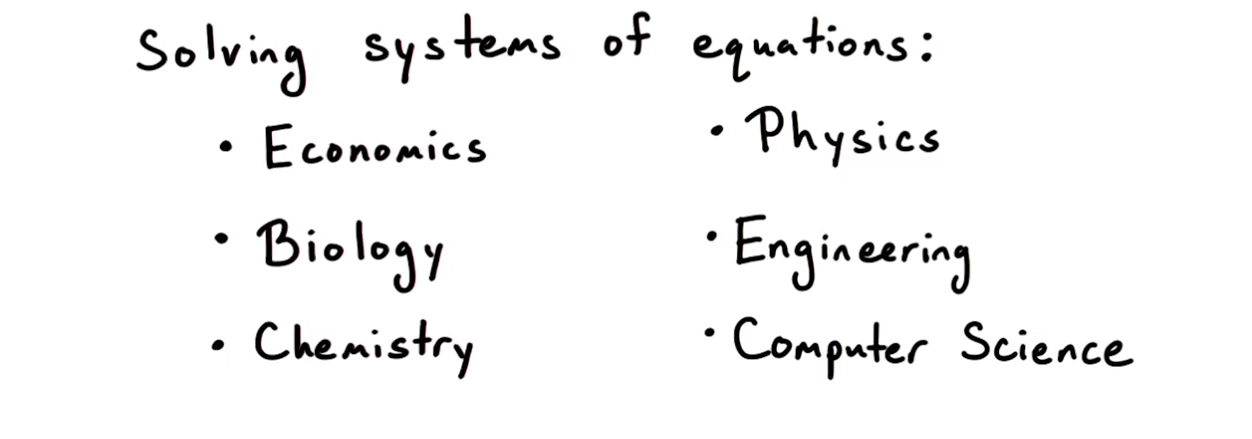 Solving systems of equations:
• Economics
• Biology
• Chemistry
• Physics
• Engineering
• Computer Science